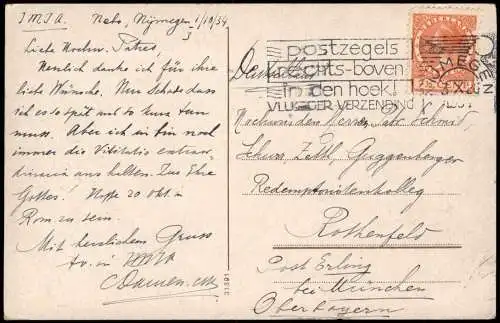 J.M.J.A. Nebo, Nijmegen 1/10/34
Liebe Hochw. Patres,
Herzlich danke ich für ihre
liebe Wünsche. Nur Schade dass
ich es so spät und so kurz tun
muss. Aber ich bin noch
immer von Vitalitas extraor-
dinaria anhalten. Zur Ehre
Gottes! Hoffe 20 Okt. in
Rom zu sein.
Mit herzlichem Gruss
tv. in
C Damen
postzegels
rechts-boven
in den hoek!
VLUGGER VERZENDING
NIJMEGEN
NEDERLAND
Hochwürden Herren Patr Schmid,
Schurr Zettl, Guggenberger
Redemptoristenkolleg
Rothenfeld
Post Erling
bei München
Oberbayern
31391